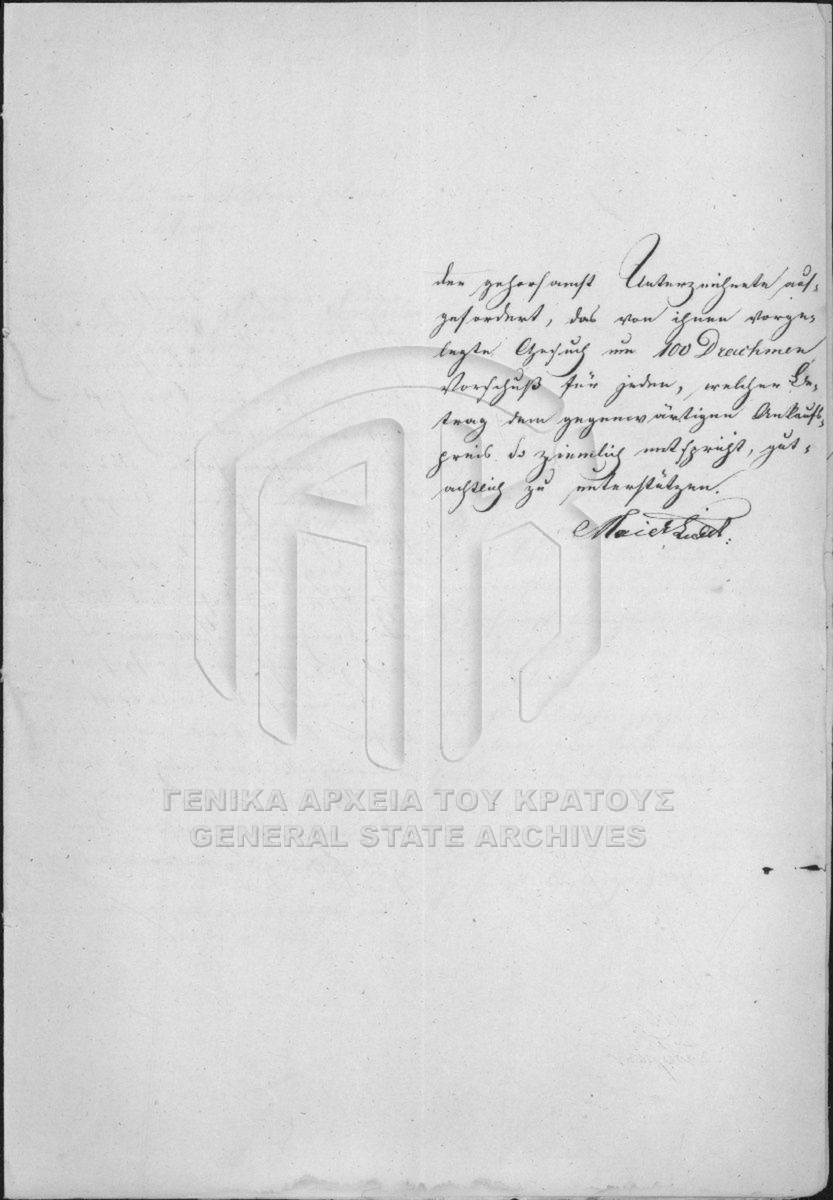 der gehorsamst Unterzeichnete auf-
gefordert, das von ihnen vorge-
legte Gesuch um 100 Drachmen
Vorschuß für jeden, welcher Be-
trag dem gegenwärtigen Ankaufs-
preis so ziemlich entspricht, gut-
achtlich zu unterstützen.
ΓΕΝΙΚΑ ΑΡΧΕΙΑ ΤΟΥ ΚΡΑΤΟΥΣ
GENERAL STATE ARCHIVES